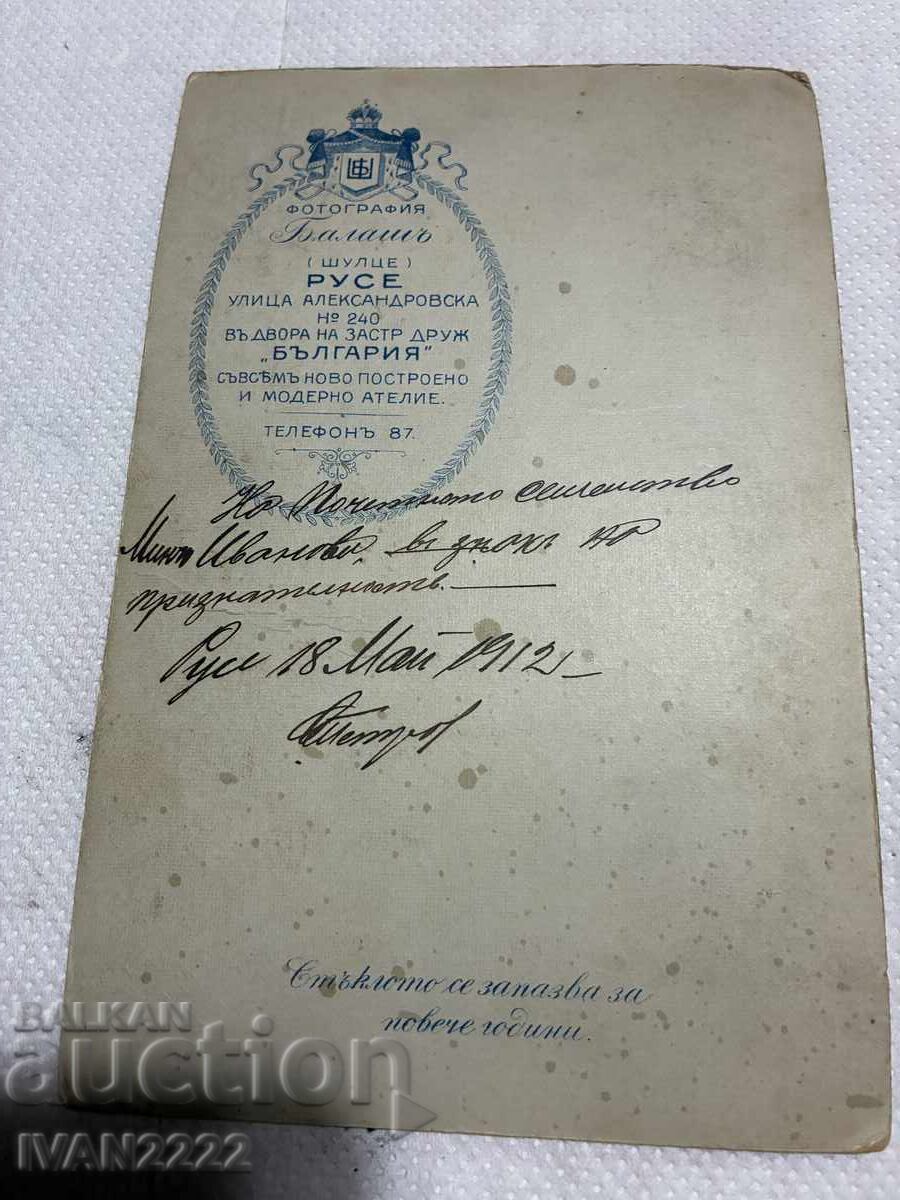 ФОТОГРАФИЯ
Балашъ
(ШУЛЦЕ)
РУСЕ
УЛИЦА АЛЕКСАНДРОВСКА
№ 240
ВЪ ДВОРА НА ЗАСТР ДРУЖ
„БЪЛГАРИЯ"
СЪВСѢМЪ НОВО ПОСТРОЕНО
И МОДЕРНО АТЕЛИЕ.
ТЕЛЕФОНЪ 87.
На Почетното семейство
Иванови, въ знакъ на
признателность.
Русе 18 Май 1912
Петров
Стъклото се запазва за
повече години.
BALKAN
auction
IVAN2222